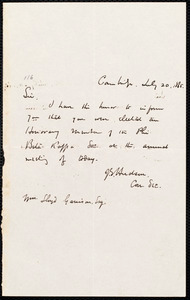 Cambridge, July 20, 1865.
Sir,
I have the honor to inform
you that you were elected an
Honorary Member of the Phi
Beta Kappa Soc. at the annual
meeting of today.
Cor. Sec.
Wm Lloyd Garrison, Esq.